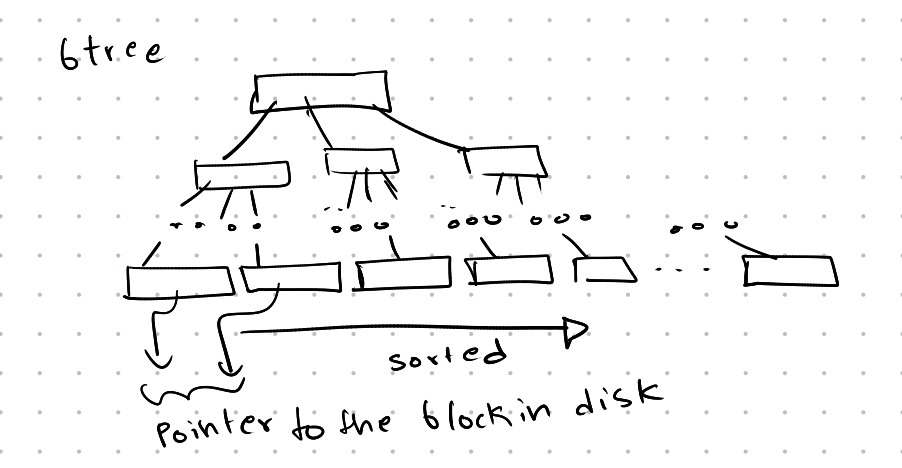 btree
sorted
pointer to the block in disk